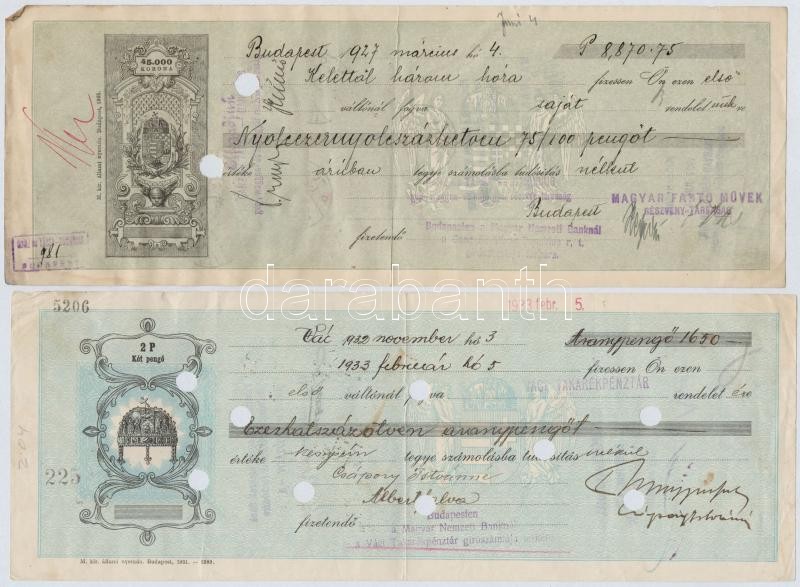 Juni 4
45.000
KORONA
Budapest 1927 március hó 4. P 8,870.75
Kelettől három hóra fizessen Ön ezen első
váltónál fogva saját rendeletünkre
Nyolcezernyolcszázhetven 75/100 pengőt
értéke áruban tegye számolásba tudósítás nélkül
Budapest
MAGYAR FESTŐ MŰVEK
RÉSZVÉNY-TÁRSASÁG
Budapesten a Magyar Nemzeti Banknál
fizetendő
M. kir. állami nyomda. Budapest, 1925.
981
BUDAPEST
darabanth
5206
1933 febr. 5.
2 P
Két pengő
Vác 1932 november hó 3 Aranypengő 1650
1933 február hó 5 fizessen Ön ezen
első váltónál fogva VÁCI TAKARÉKPÉNZTÁR rendeletére
Ezerhatszázötven aranypengőt
225
204
értéke készpénz tegye számolásba tudósítás nélkül
Csápory Istvánné
fizetendő
Budapesten
a Magyar Nemzeti Banknál
a Váci Takarékpénztár girószámlája terhére
M. kir. állami nyomda. Budapest, 1931.